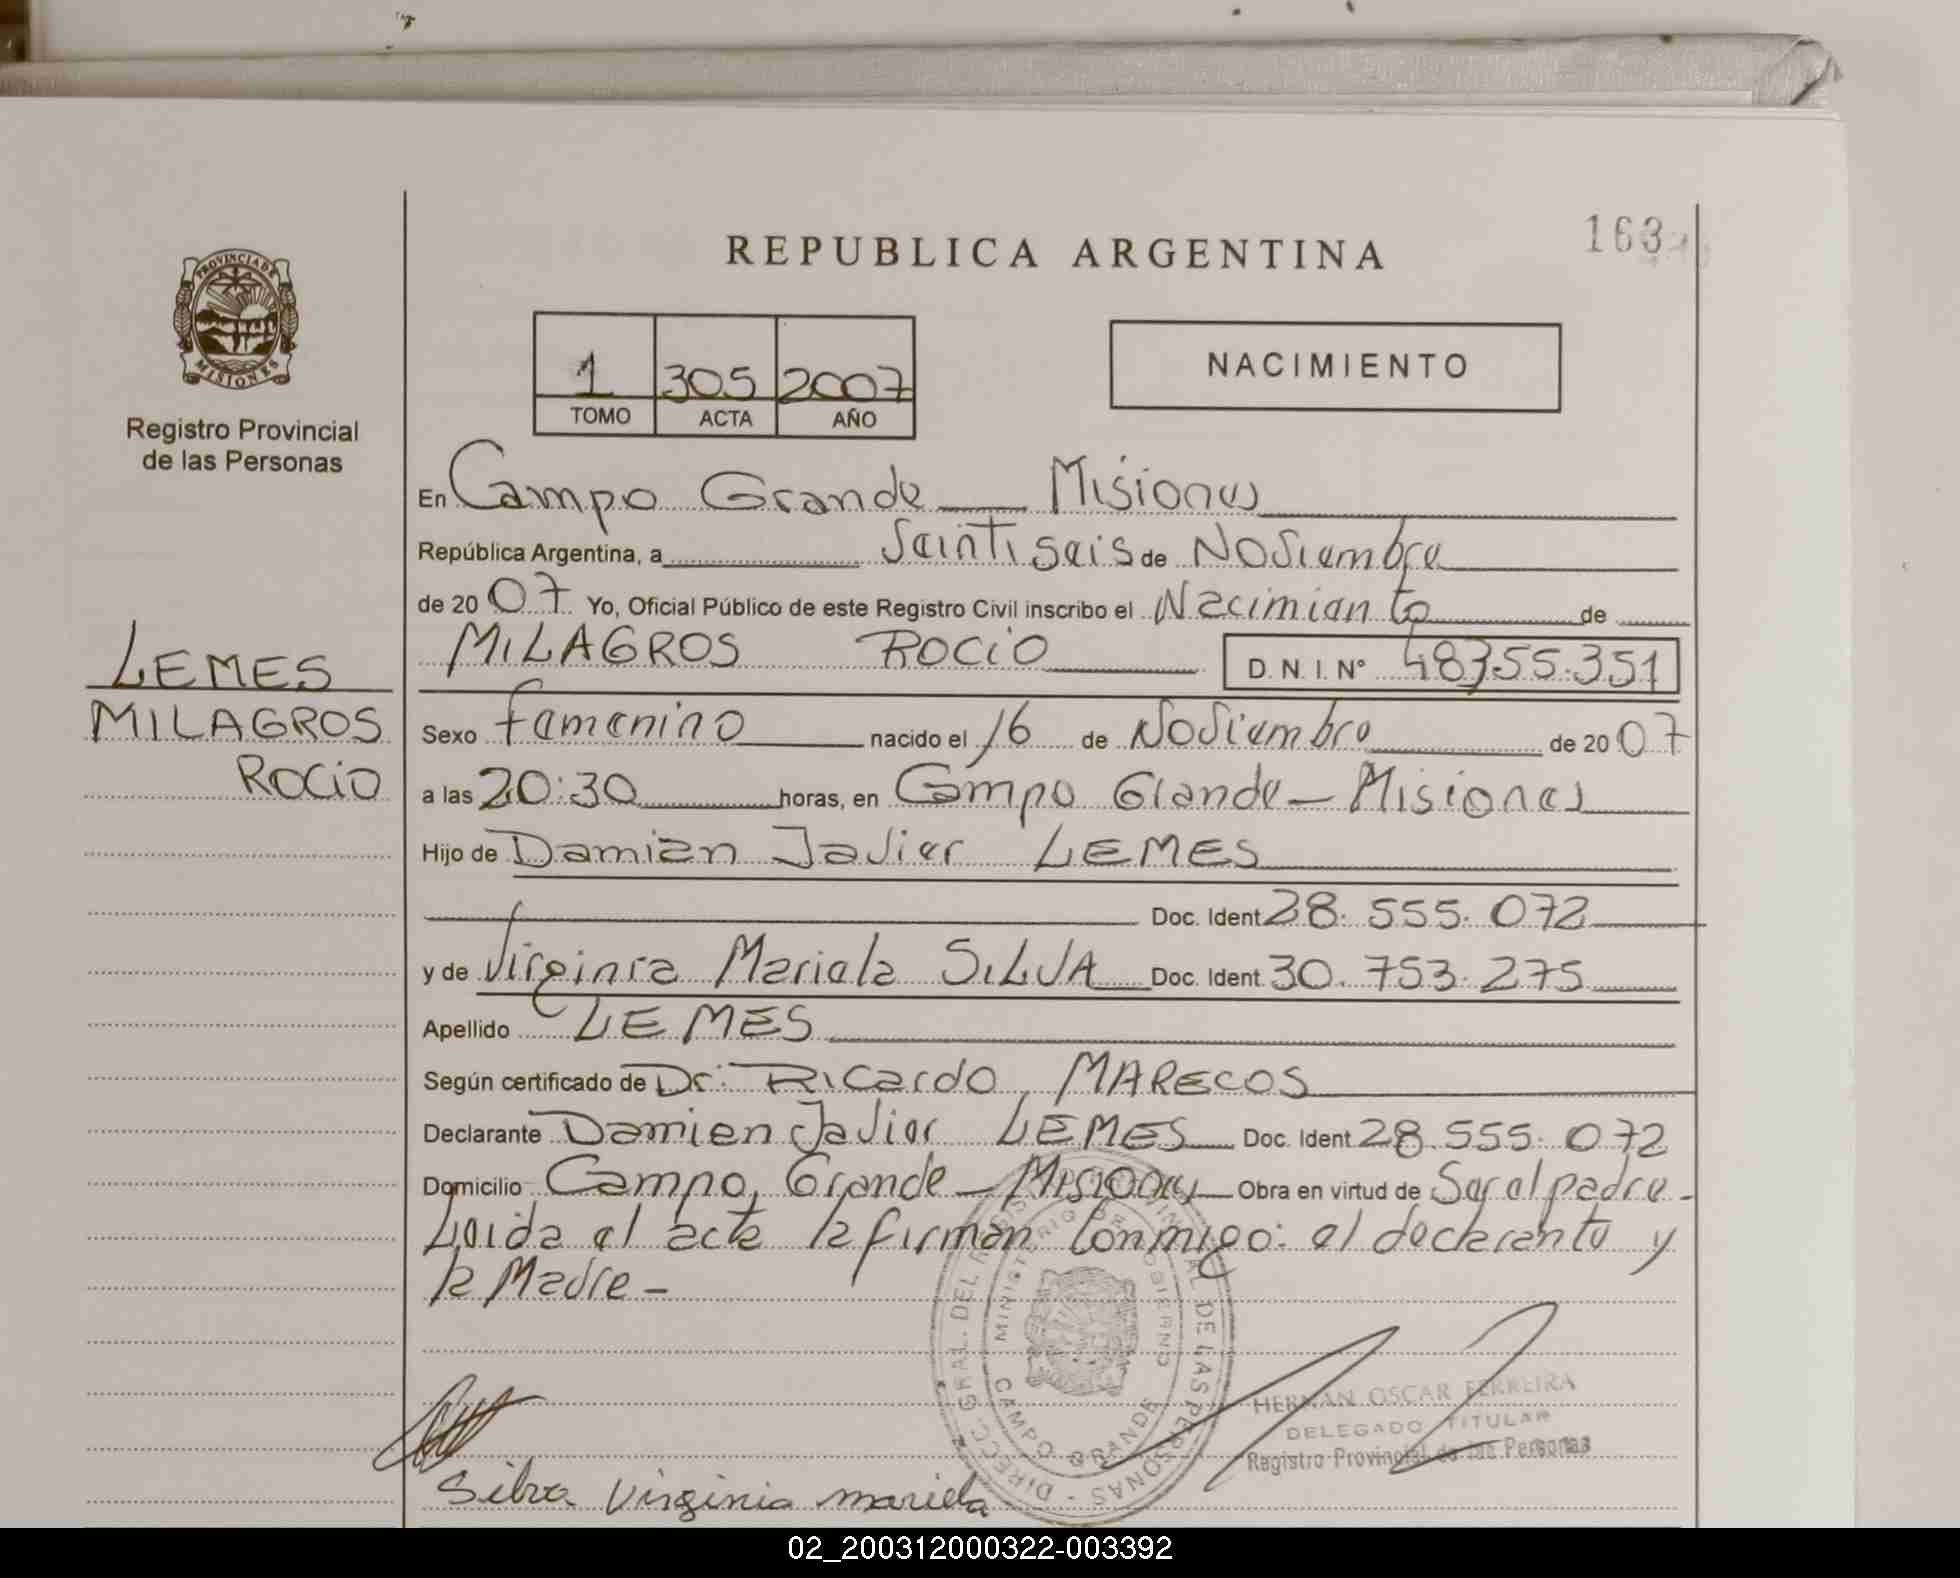 163
REPUBLICA ARGENTINA
PROVINCIA DE
MISIONES
Registro Provincial
de las Personas
1 305 2007
TOMO ACTA AÑO
NACIMIENTO
En Campo Grande Misiones
República Argentina, a Veintiseis de Noviembre
de 2007 Yo, Oficial Público de este Registro Civil inscribo el Nacimiento de
MILAGROS ROCIO D.N.I. Nº 48355.351
LEMES
MILAGROS
ROCIO
Sexo Femenino nacido el 16 de Noviembre de 2007
a las 20:30 horas, en Campo Grande - Misiones
Hijo de Damian Javier LEMES
Doc. Ident 28.555.072
y de Virginia Mariela SILVA Doc. Ident. 30.753.275
Apellido LEMES
Según certificado de Dr. Ricardo MARECOS
Declarante Damien Javier LEMES Doc. Ident 28.555.072
Domicilio Campo Grande - Misiones Obra en virtud de Ser el padre -
Leida el acta la firman conmigo: el declarante y
la Madre -
DIRECC. GRAL. DEL DE LAS PERSONAS
MINISTERIO DE GOBIERNO
CAMPO GRANDE
HERNAN OSCAR FERREIRA
DELEGADO TITULAR
Registro Provincial de las Personas
Silva Virginia mariela
02_200312000322-003392